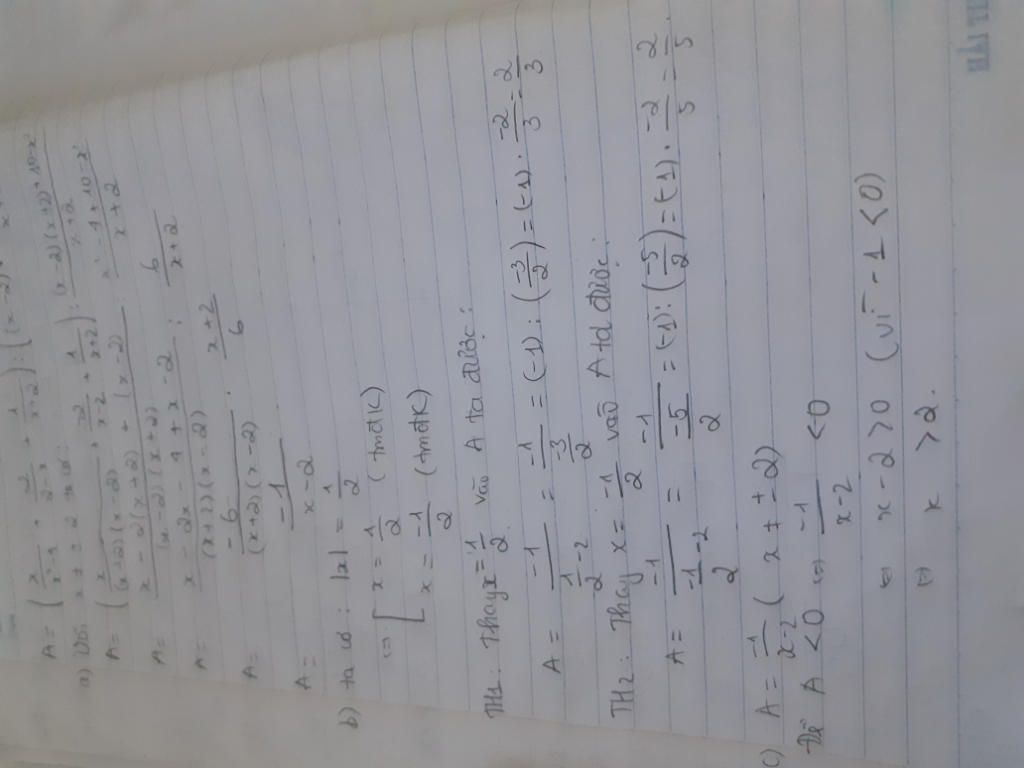 A = (x/x²-4 + 2/2-x + 1/x+2) : ((x-2) +
a) Với x ≠ ± 2 ta có:
A = (x/(x+2)(x-2) + -2/x-2 + 1/x+2) : (x-2)(x+2)+10-x²/x+2
A = x-2(x+2)+(x-2)/(x-2)(x+2) : x²-4+10-x²/x+2
A = x-2x-4+x-2/(x+2)(x-2) : 6/x+2
A = -6/(x+2)(x-2) . x+2/6
A = -1/x-2
b) ta có: |x| = 1/2
<=> [ x = 1/2 (tmđk)
[ x = -1/2 (tmđk)
TH1: Thay x = 1/2 vào A ta được:
A = -1/1/2-2 = -1/-3/2 = (-1):(-3/2) = (-1).-2/3 = 2/3
TH2: Thay x = -1/2 vào A ta được:
A = -1/-1/2-2 = -1/-5/2 = (-1):(-5/2) = (-1).-2/5 = 2/5
c) A = -1/x-2 (x ≠ ±2)
Để A <0 <=> -1/x-2 <0
<=> x-2>0 (vì -1<0)
<=> x >2.